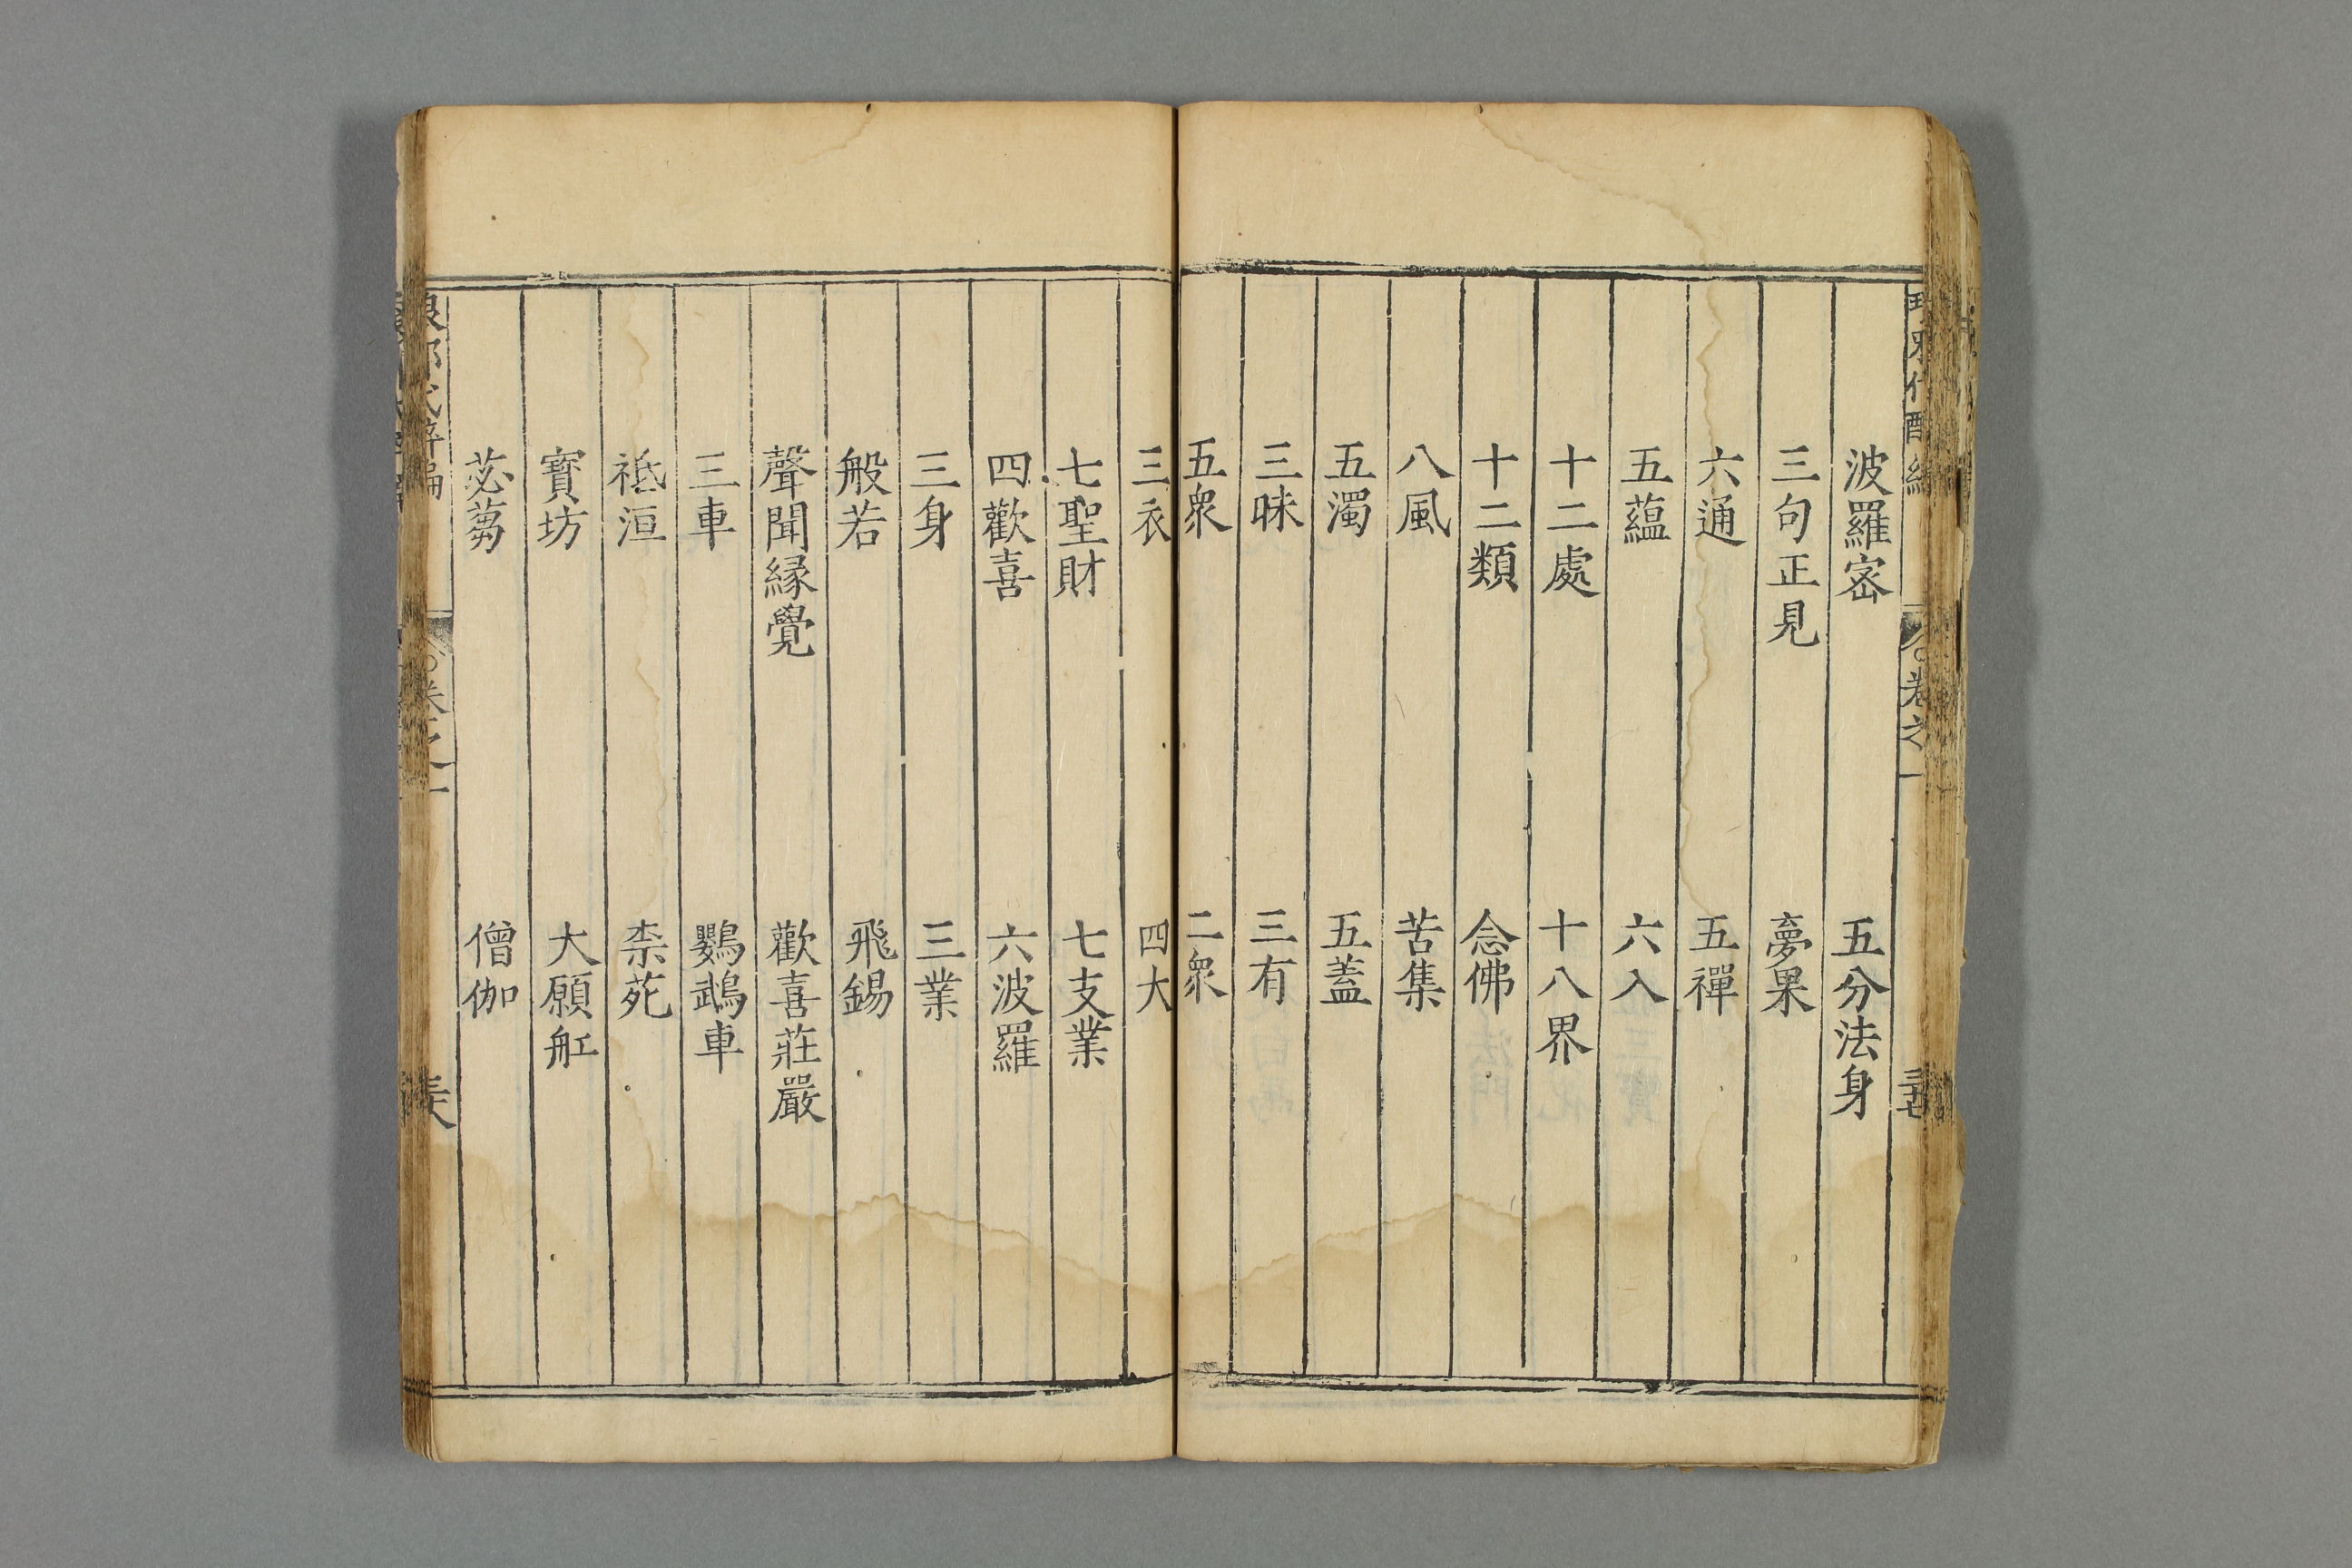 波羅宻 五分法身
三句正見 夢果
六通 五禪
五蘊 六入
十二處 十八界
十二類 念佛
八風 苦集
五濁 五蓋
三昧 三有
五衆 二衆
三衣 四大
七聖財 七支業
四歡喜 六波羅
三身 三業
般若 飛錫
聲聞縁覺 歡喜莊嚴
三車 鸚鵡車
祇洹 柰苑
寳坊 大願舡
苾蒭 僧伽
卷之一